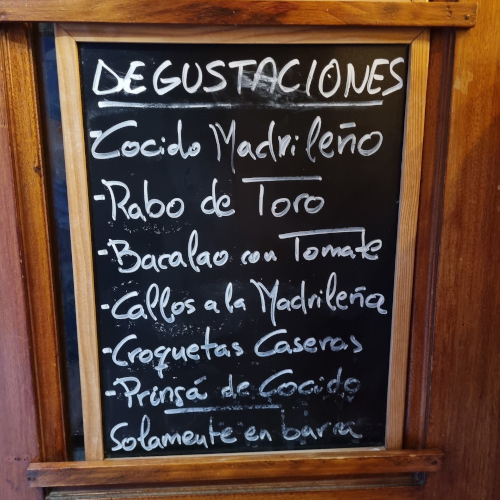 DEGUSTACIONES
-Cocido Madrileño
-Rabo de Toro
-Bacalao con Tomate
-Callos a la Madrileña
-Croquetas Caseras
-Pringá de Cocido
Solamente en barra